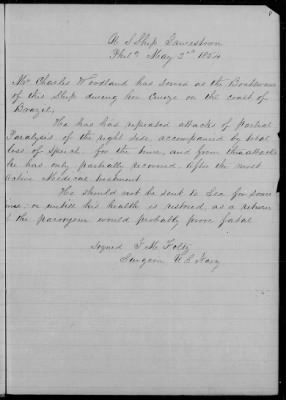 U. S. Ship Jamestown
Phila May 2nd 1854
Mr Charles Woodland has served as the Boatswain
of this Ship during her Cruize on the coast of
Brazil;
He has had repeated attacks of Partial
Paralysis of the right side, accompanied by total
loss of Speech for the time, and from these attacks
he has only partially recovered after the most
active Medical treatment.
He should not be sent to Sea for some
time; or untill his health is restored, as a return
of the paroxysm would probably prove fatal
Signed J. M. Foltz
Surgeon U S Navy